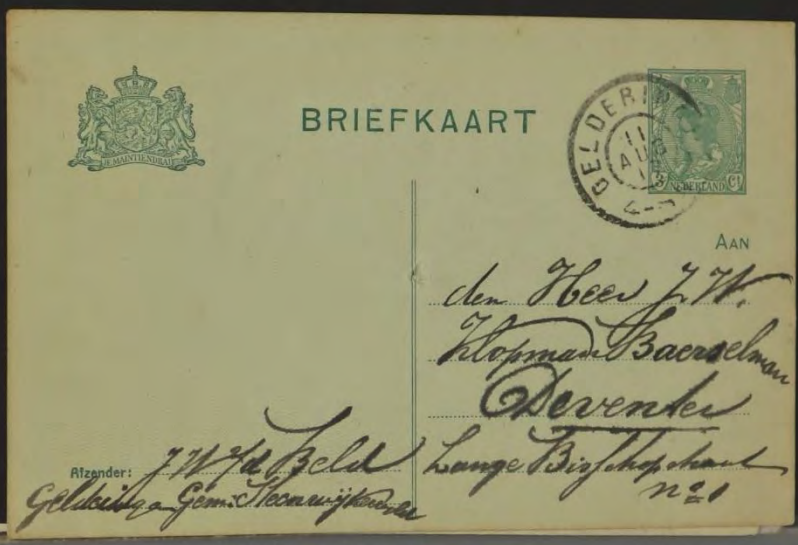 BRIEFKAART
JE MAINTIENDRAI
GELDERIN
11
AUG
4-5
NEDERLAND Ct
AAN
den Heer J. W.
Klopman Baerselman
Deventer
Lange Bisschopstraat
no 1
Afzender: J W v d Beld
Gelderingen Gem: Steenwijkerwold